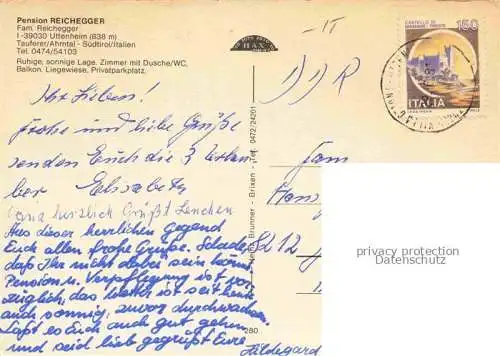 Pension REICHEGGER
Fam. Reichegger
I-39030 Uttenheim (838 m)
Tauferer/Ahrntal - Südtirol/Italien
Tel. 0474/54103
Ruhige, sonnige Lage. Zimmer mit Dusche/WC,
Balkon. Liegewiese. Privatparkplatz.
CASTELLO DI
150
ITALIA
DDR
Ihr Lieben!
Frohe und liebe Grüße
senden Euch die 3 Urlau-
ber Elisabeth
herzlich Grüßt Lenchen
Aus dieser herrlichen Gegend
Euch allen frohe Grüße. Schade
daß Ihr nicht dabei sein könnt.
Pension u. Verpflegung ist vor-
züglich, das Wetter ist seit heute
auch sonnig, zuvor durchwachsen.
Laßt es Euch auch gut gehen
und seid lieb gegrüßt Eure
Hildegard
Brunner - Brixen - Tel. 0472/24201
280
Fam
Hans
8212
privacy protection
Datenschutz